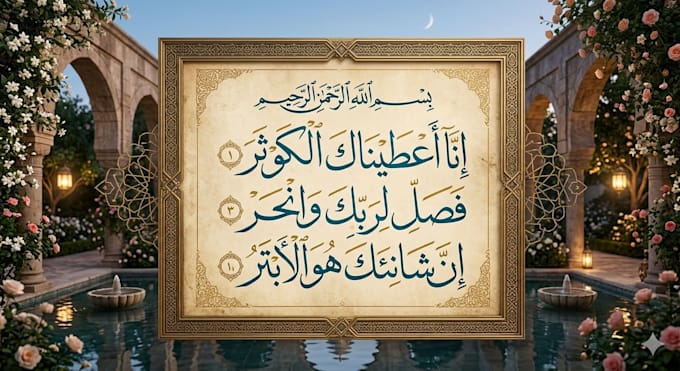 بِسْمِ اللَّهِ الرَّحْمَٰنِ الرَّحِيمِ
إِنَّآ أَعْطَيْنَاكَ الْكَوْثَرَ ١
فَصَلِّ لِرَبِّكَ وَانْحَرْ ٣
إِنَّ شَانِئَكَ هُوَ الْأَبْتَرُ ١٠